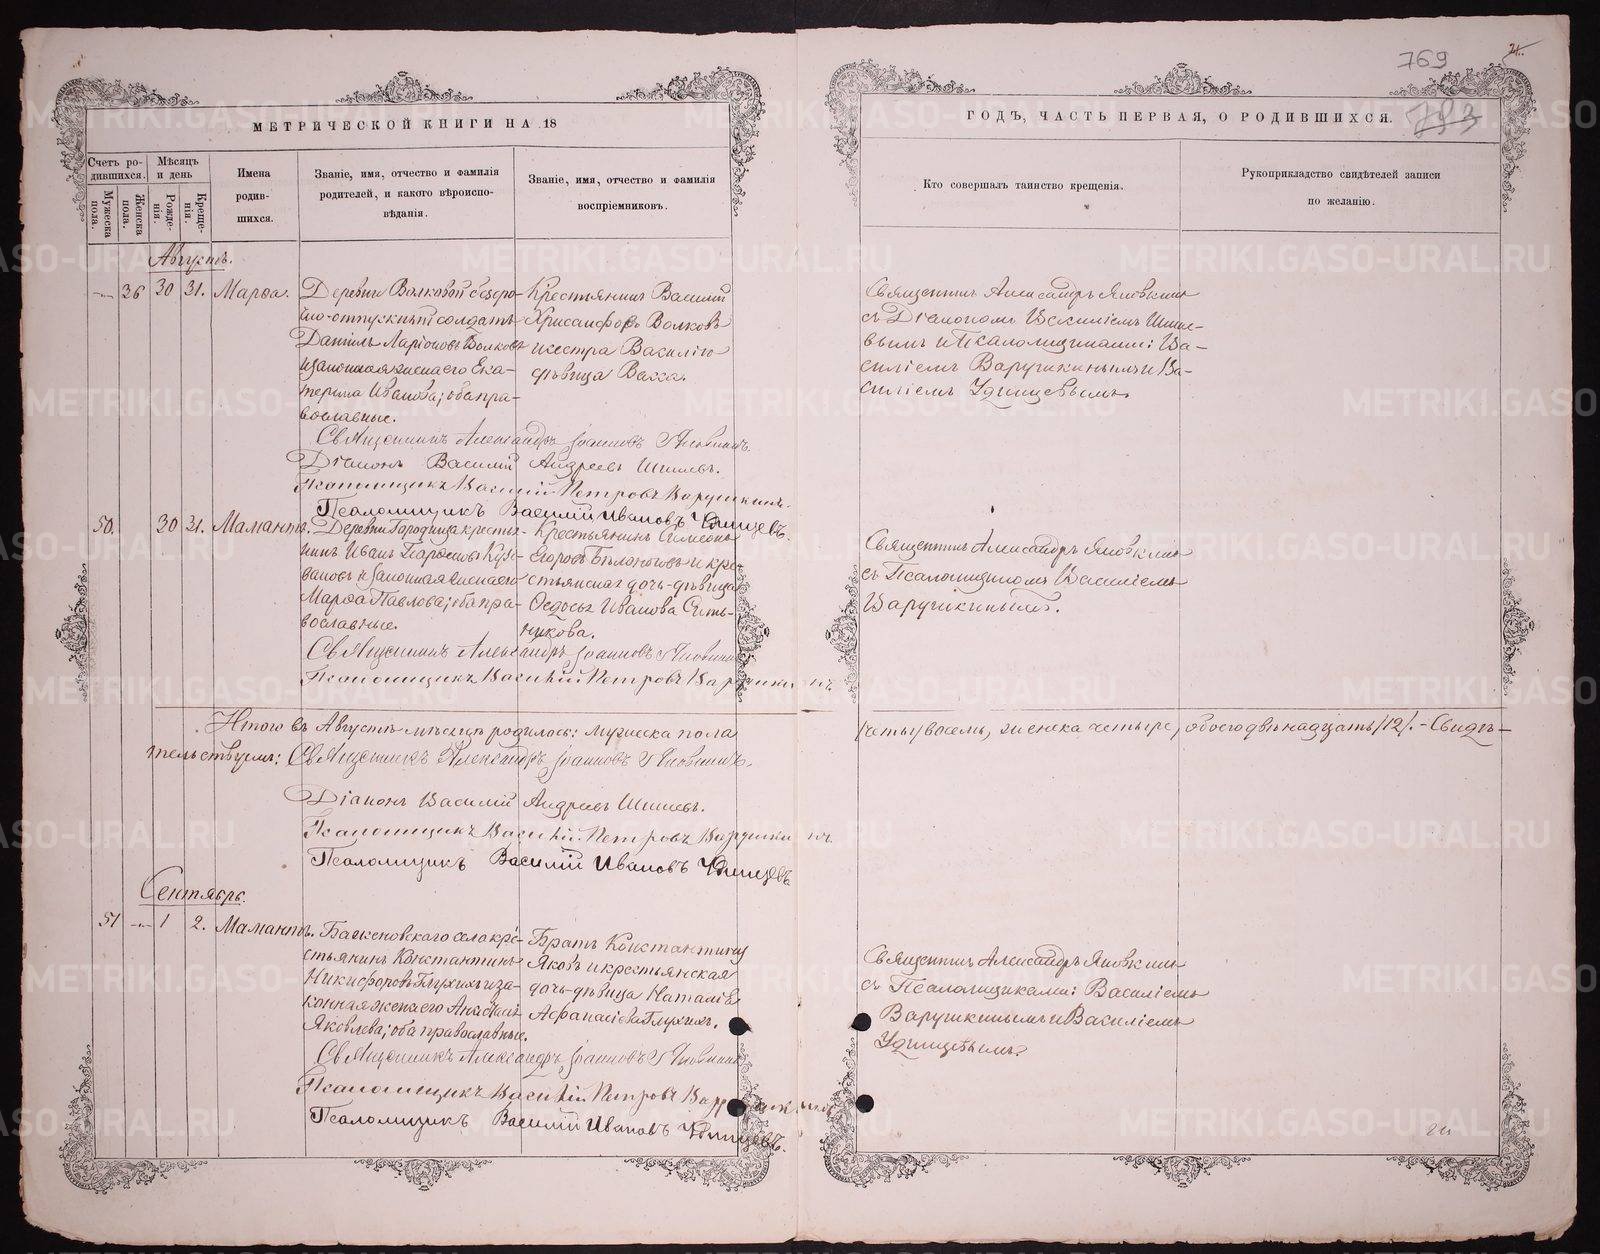 769
21.
793
МЕТРИЧЕСКОЙ КНИГИ НА 18
ГОДЪ, ЧАСТЬ ПЕРВАЯ, О РОДИВШИХСЯ.
Счетъ ро-
дившихся.
Мужеска
пола.
Женска
пола.
Мѣсяцъ
и день
Рожде-
нія.
Креще-
нія.
Имена
родив-
шихся.
Званіе, имя, отчество и фамилія
родителей, и какого вѣроиспо-
вѣданія.
Званіе, имя, отчество и фамилія
воспріемниковъ.
Кто совершалъ таинство крещенія.
Рукоприкладство свидѣтелей записи
по желанію.
Августъ.
36 30 31. Марѳа.
Деревни Волковой безсро-
чно-отпускный солдатъ
Даніилъ Ларіоновъ Волковъ
и законная жена его Ека-
терина Иванова; оба пра-
вославные.
Крестьянинъ Василій
Хрисанфовъ Волковъ
и сестра Василію
дѣвица Васса.
Священникъ Александръ Яновкинъ
съ Діакономъ Василіемъ Шиши-
вымъ и Псаломщиками: Ва-
силіемъ Варушкинымъ и Ва-
силіемъ Удинцевымъ.
Священникъ Александръ Іоанновъ
Діаконъ Василій Андреевъ
Псаломщикъ Василій Петровъ Варушкинъ.
Псаломщикъ Василій Ивановъ Удинцевъ.
50. 30 31. Мамантъ.
Деревни Городища кресть-
нинъ Иванъ
и законная жена его
Марѳа Павлова; оба пра-
вославные.
Крестьянинъ Симеонъ
Егоровъ Бѣлоноговъ и кре-
стьянская дочь-дѣвица
Ѳедосья Иванова Сить-
никова.
Священникъ Александръ Яновкинъ
съ Псаломщикомъ Василіемъ
Варушкинымъ.
Священникъ Александръ Іоанновъ
Псаломщикъ Василій Петровъ Варушкинъ
Итого въ Августѣ мѣсяцѣ родилось: мужеска пола
(четы) восемь, женска четыре, обоего двѣнадцать (12). - Свидѣ-
тельствуемъ: Священникъ Александръ Іоанновъ
Діаконъ Василій Андреевъ
Псаломщикъ Василій Петровъ Варушкинъ.
Псаломщикъ Василій Ивановъ Удинцевъ
Сентябрь.
51 1 2. Мамантъ.
Баженовскаго села кре-
стьянинъ Константинъ
Никифоровъ Глухихъ и за-
конная жена его Анастасія
Яковлева; оба православные.
Братъ Константину
Яковъ и крестьянская
дочь-дѣвица Наталія
Аѳанасіева Глухихъ.
Священникъ Александръ Яновкинъ
съ Псаломщиками: Василіемъ
Варушкинымъ и Василіемъ
Удинцевымъ.
Священникъ Александръ Іоанновъ
Псаломщикъ Василій Петровъ Варушкинъ
Псаломщикъ Василій Ивановъ Удинцевъ.
METRIKI.GASO-URAL.RU